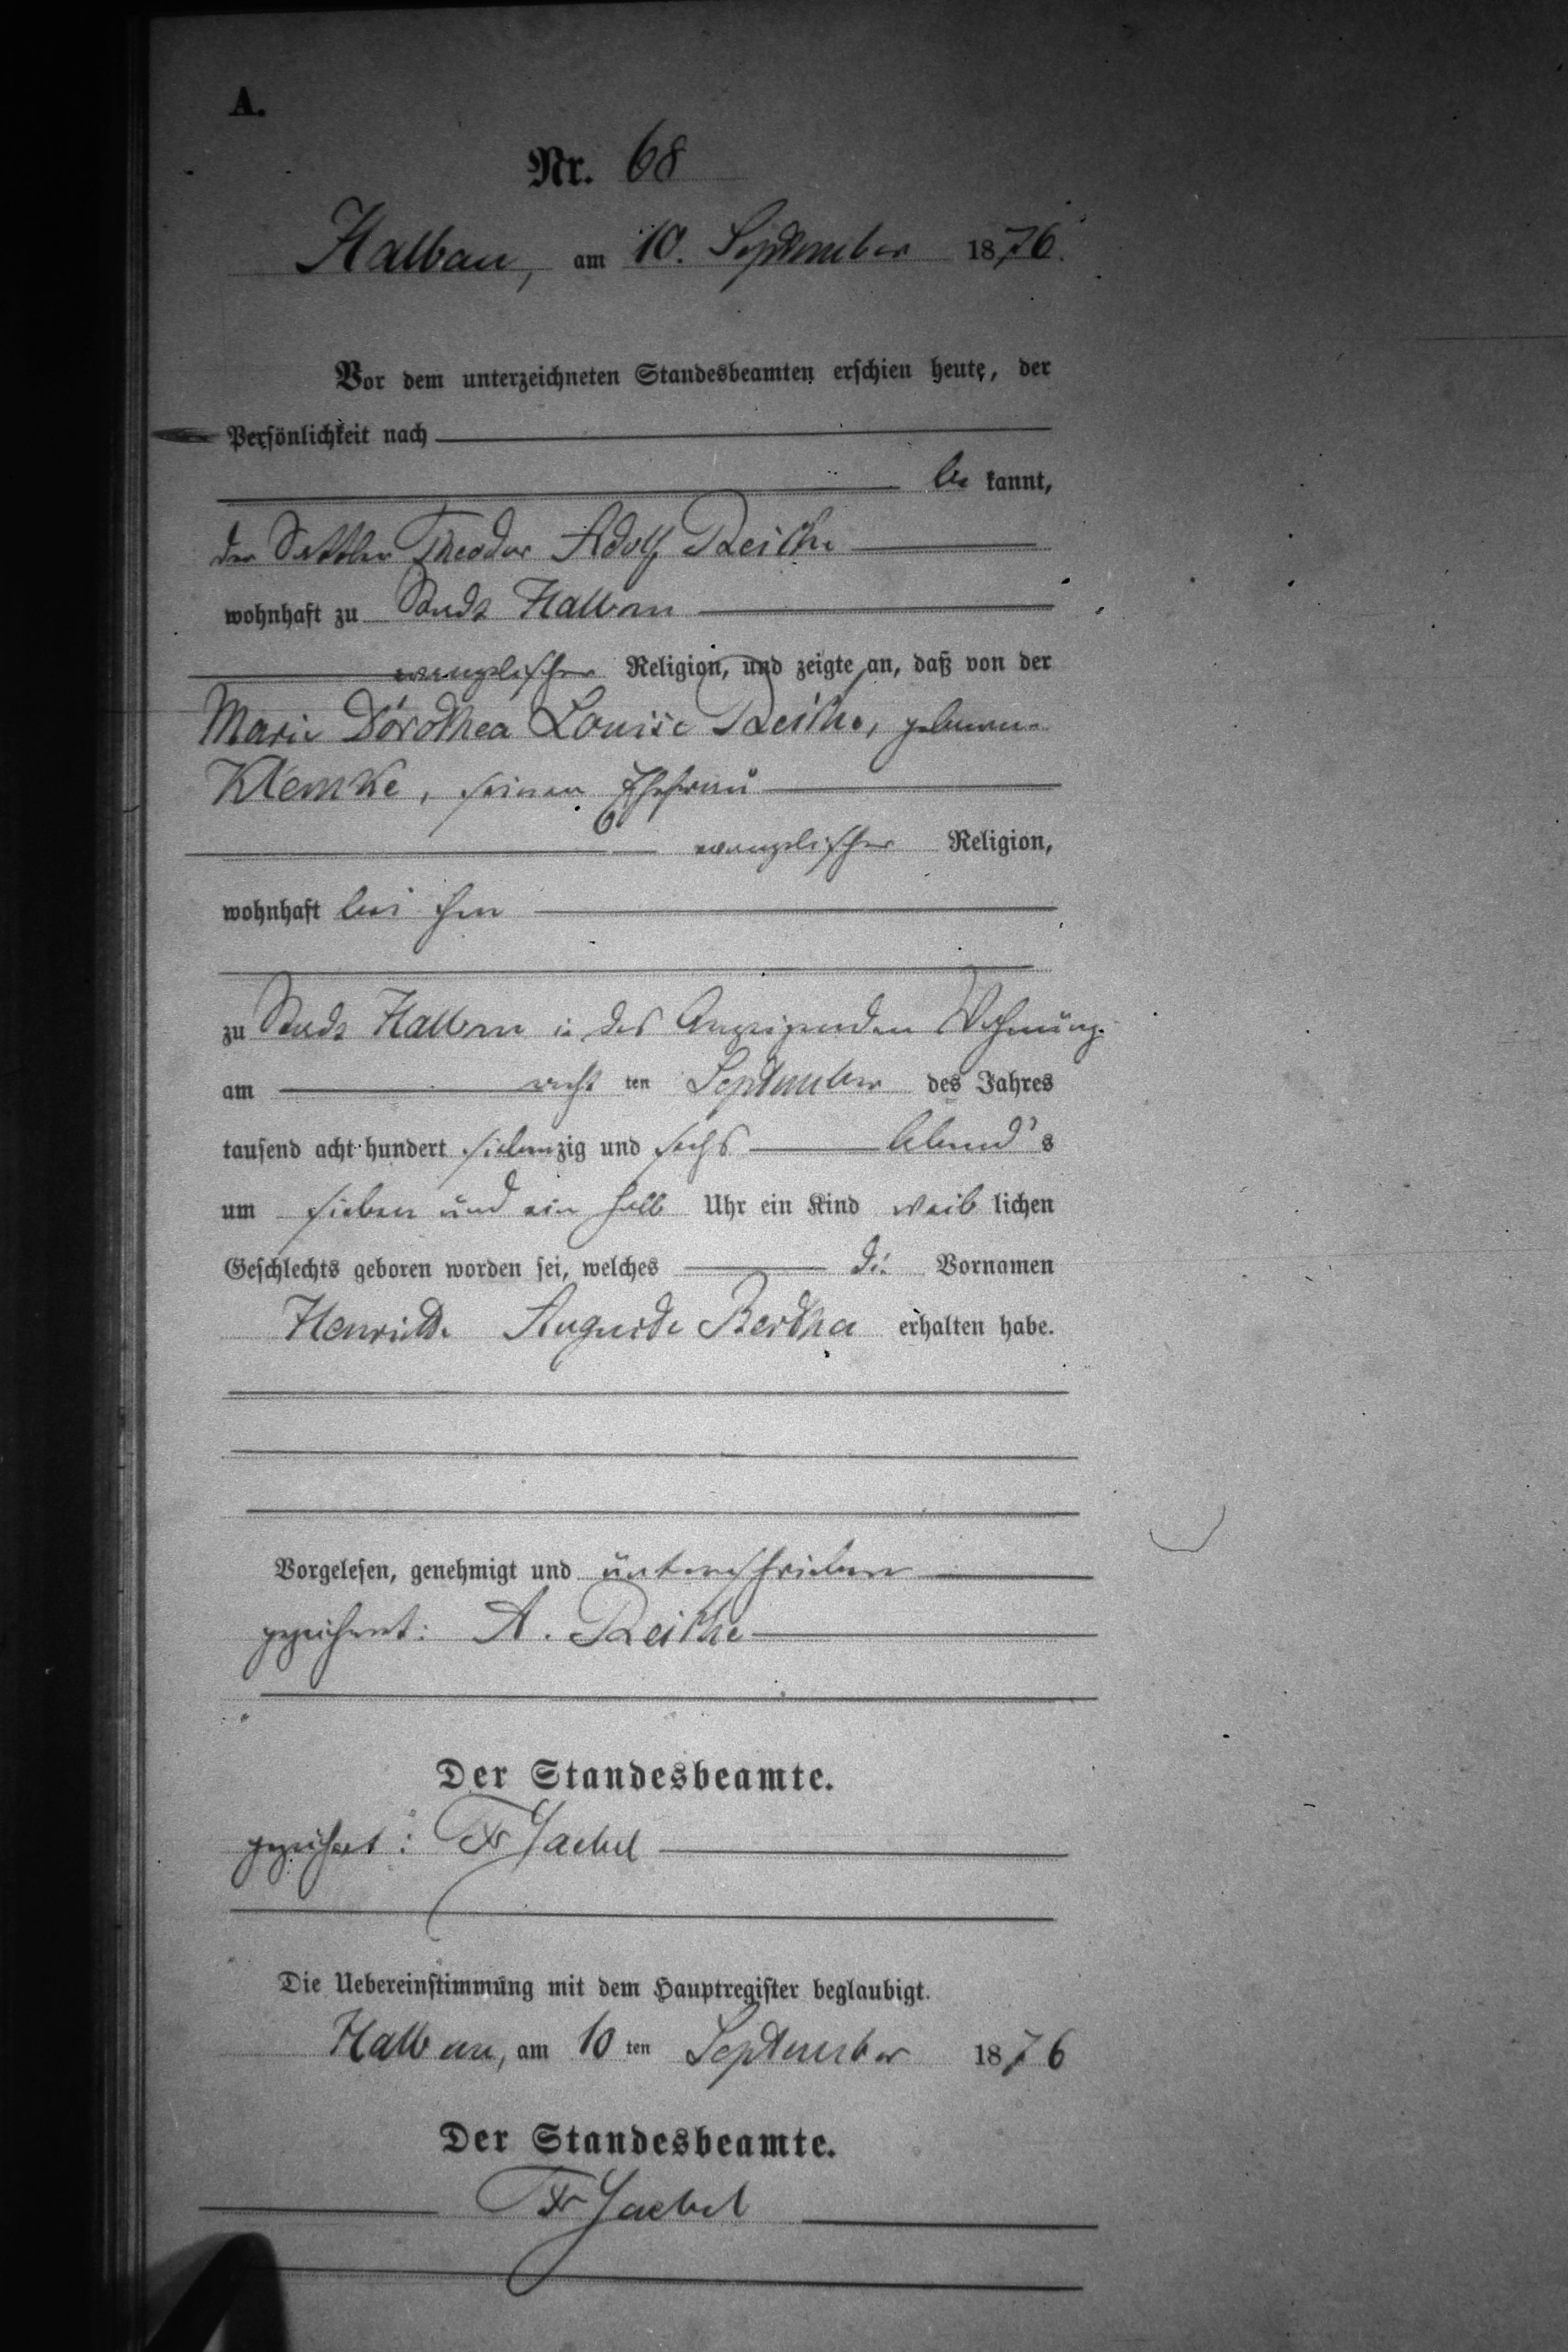 A.
Nr. 68
Halbau, am 10. September 1876.
Vor dem unterzeichneten Standesbeamten erschien heute, der
Persönlichkeit nach
be kannt,
der Sattler Theodor Adolf Reiche
wohnhaft zu Stadt Halbau
evangelischer Religion, und zeigte an, daß von der
Marie Dorothea Louise Reiche, geborene
Klemke, seiner Ehefrau
evangelischer Religion,
wohnhaft bei ihm
zu Stadt Halbau in des Anzeigenden Wohnung
am acht ten September des Jahres
tausend acht hundert siebenzig und sechs Abend's
um sieben und ein halb Uhr ein Kind weib lichen
Geschlechts geboren worden sei, welches die Vornamen
Henriette Auguste Bertha erhalten habe.
Vorgelesen, genehmigt und unterschrieben
gezeichnet: A. Reiche
Der Standesbeamte.
gezeichnet: Fr Jaekel
Die Uebereinstimmung mit dem Hauptregister beglaubigt.
Halbau, am 10 ten September 1876
Der Standesbeamte.
Fr Jaekel